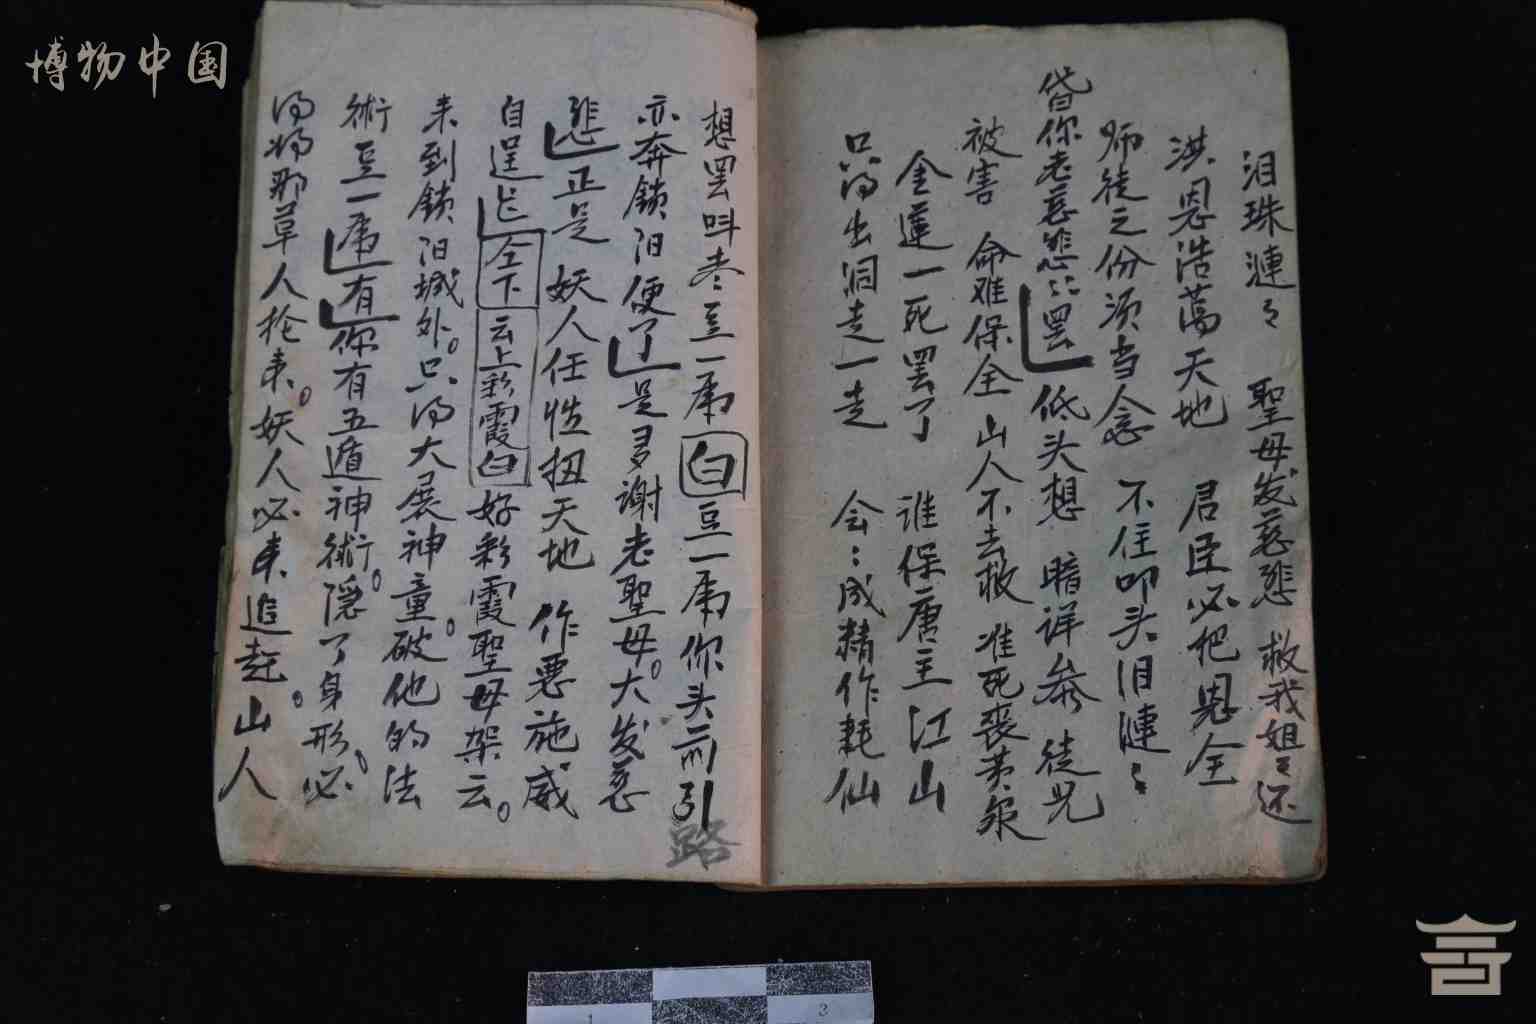 博物中国
泪珠漣々 聖母发慈悲 救我姐々还
洪恩浩蕩天地 君臣必把恩全
师徒之份须当念 不住叩头泪漣〻
你老慈悲〻罢 低头想 暗详参 徒兄
被害 命难保全 山人不去救 准死丧黄泉
金蓮一死罢了 谁保唐王江山
只得出洞走一走 会〻成精作耗仙
想罢叫声豆一虎白豆一虎你头前引路
亦奔鎖汨便了是多謝老聖母。大发慈
悲正是 妖人任性扭天地 作惡施威
自逞上仝下云上彩霞白好彩霞聖母架云。
来到鎖汨城外。只得大展神童。破他的法
術豆一虎有你有五遁神術。隐了身形。必
得將那草人抢来。妖人必来追赶。山人